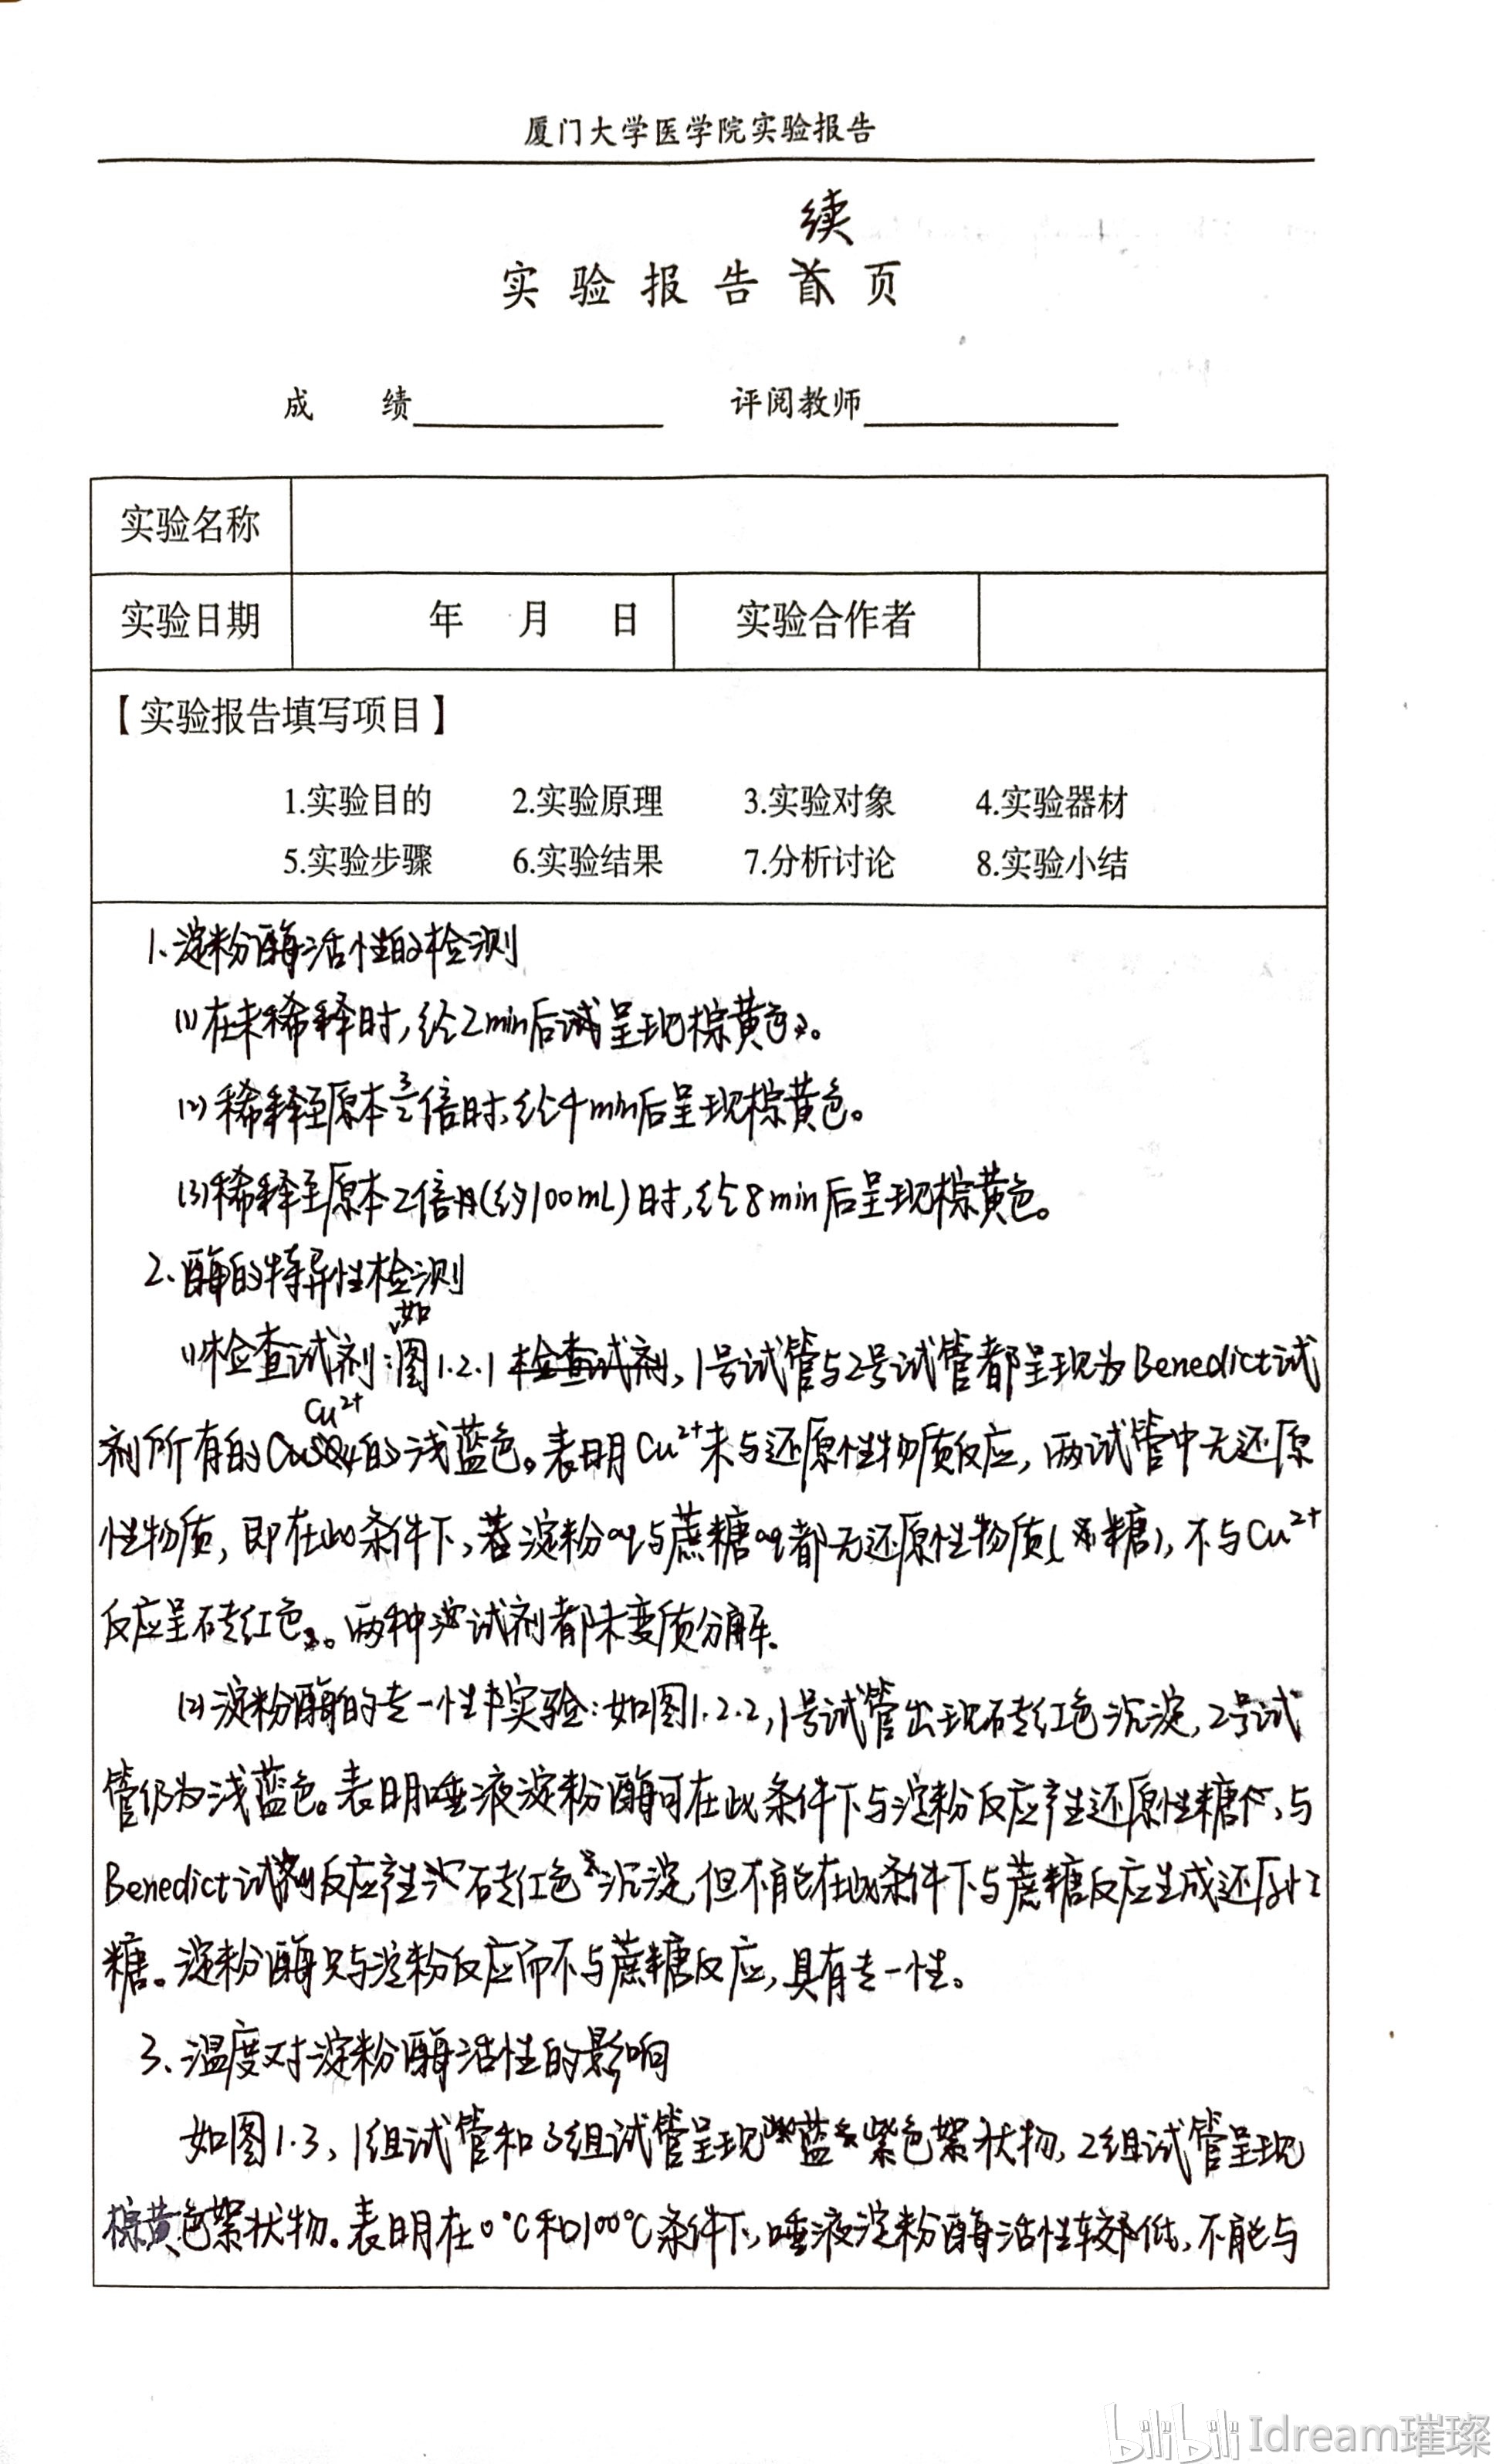 厦门大学医学院实验报告
续
实验报告首页
成 绩 评阅教师
实验名称
实验日期 年 月 日 实验合作者
【实验报告填写项目】
1.实验目的 2.实验原理 3.实验对象 4.实验器材
5.实验步骤 6.实验结果 7.分析讨论 8.实验小结
1.淀粉酶活性的检测
(1)在未稀释时,经2min后呈现棕黄色。
(2)稀释至原本3/2倍时,经4min后呈现棕黄色。
(3)稀释至原本2倍(约100mL)时,经8min后呈现棕黄色。
2.酶的特异性检测
(1)检查试剂:如图1.2.1检查试剂,1号试管与2号试管都呈现为Benedict试
剂所有的Cu²⁺的浅蓝色。表明Cu²⁺未与还原性物质反应,两试管中无还原
性物质,即在此条件下,淀粉aq与蔗糖aq都无还原性物质(糖),不与Cu²⁺
反应呈砖红色。两种试剂都未变质分解.
(2)淀粉酶的专一性实验:如图1.2.2,1号试管出现砖红色沉淀,2号试
管仍为浅蓝色。表明唾液淀粉酶可在此条件下与淀粉反应产生还原性糖,与
Benedict试剂反应产生砖红色沉淀,但不能在此条件下与蔗糖反应生成还原性
糖。淀粉酶只与淀粉反应而不与蔗糖反应,具有专一性。
3、温度对淀粉酶活性的影响
如图1.3,1组试管和3组试管呈现蓝紫色絮状物,2组试管呈现
棕黄色絮状物。表明在0°C和100°C条件下,唾液淀粉酶活性较低,不能与
bilibili Idream璀璨